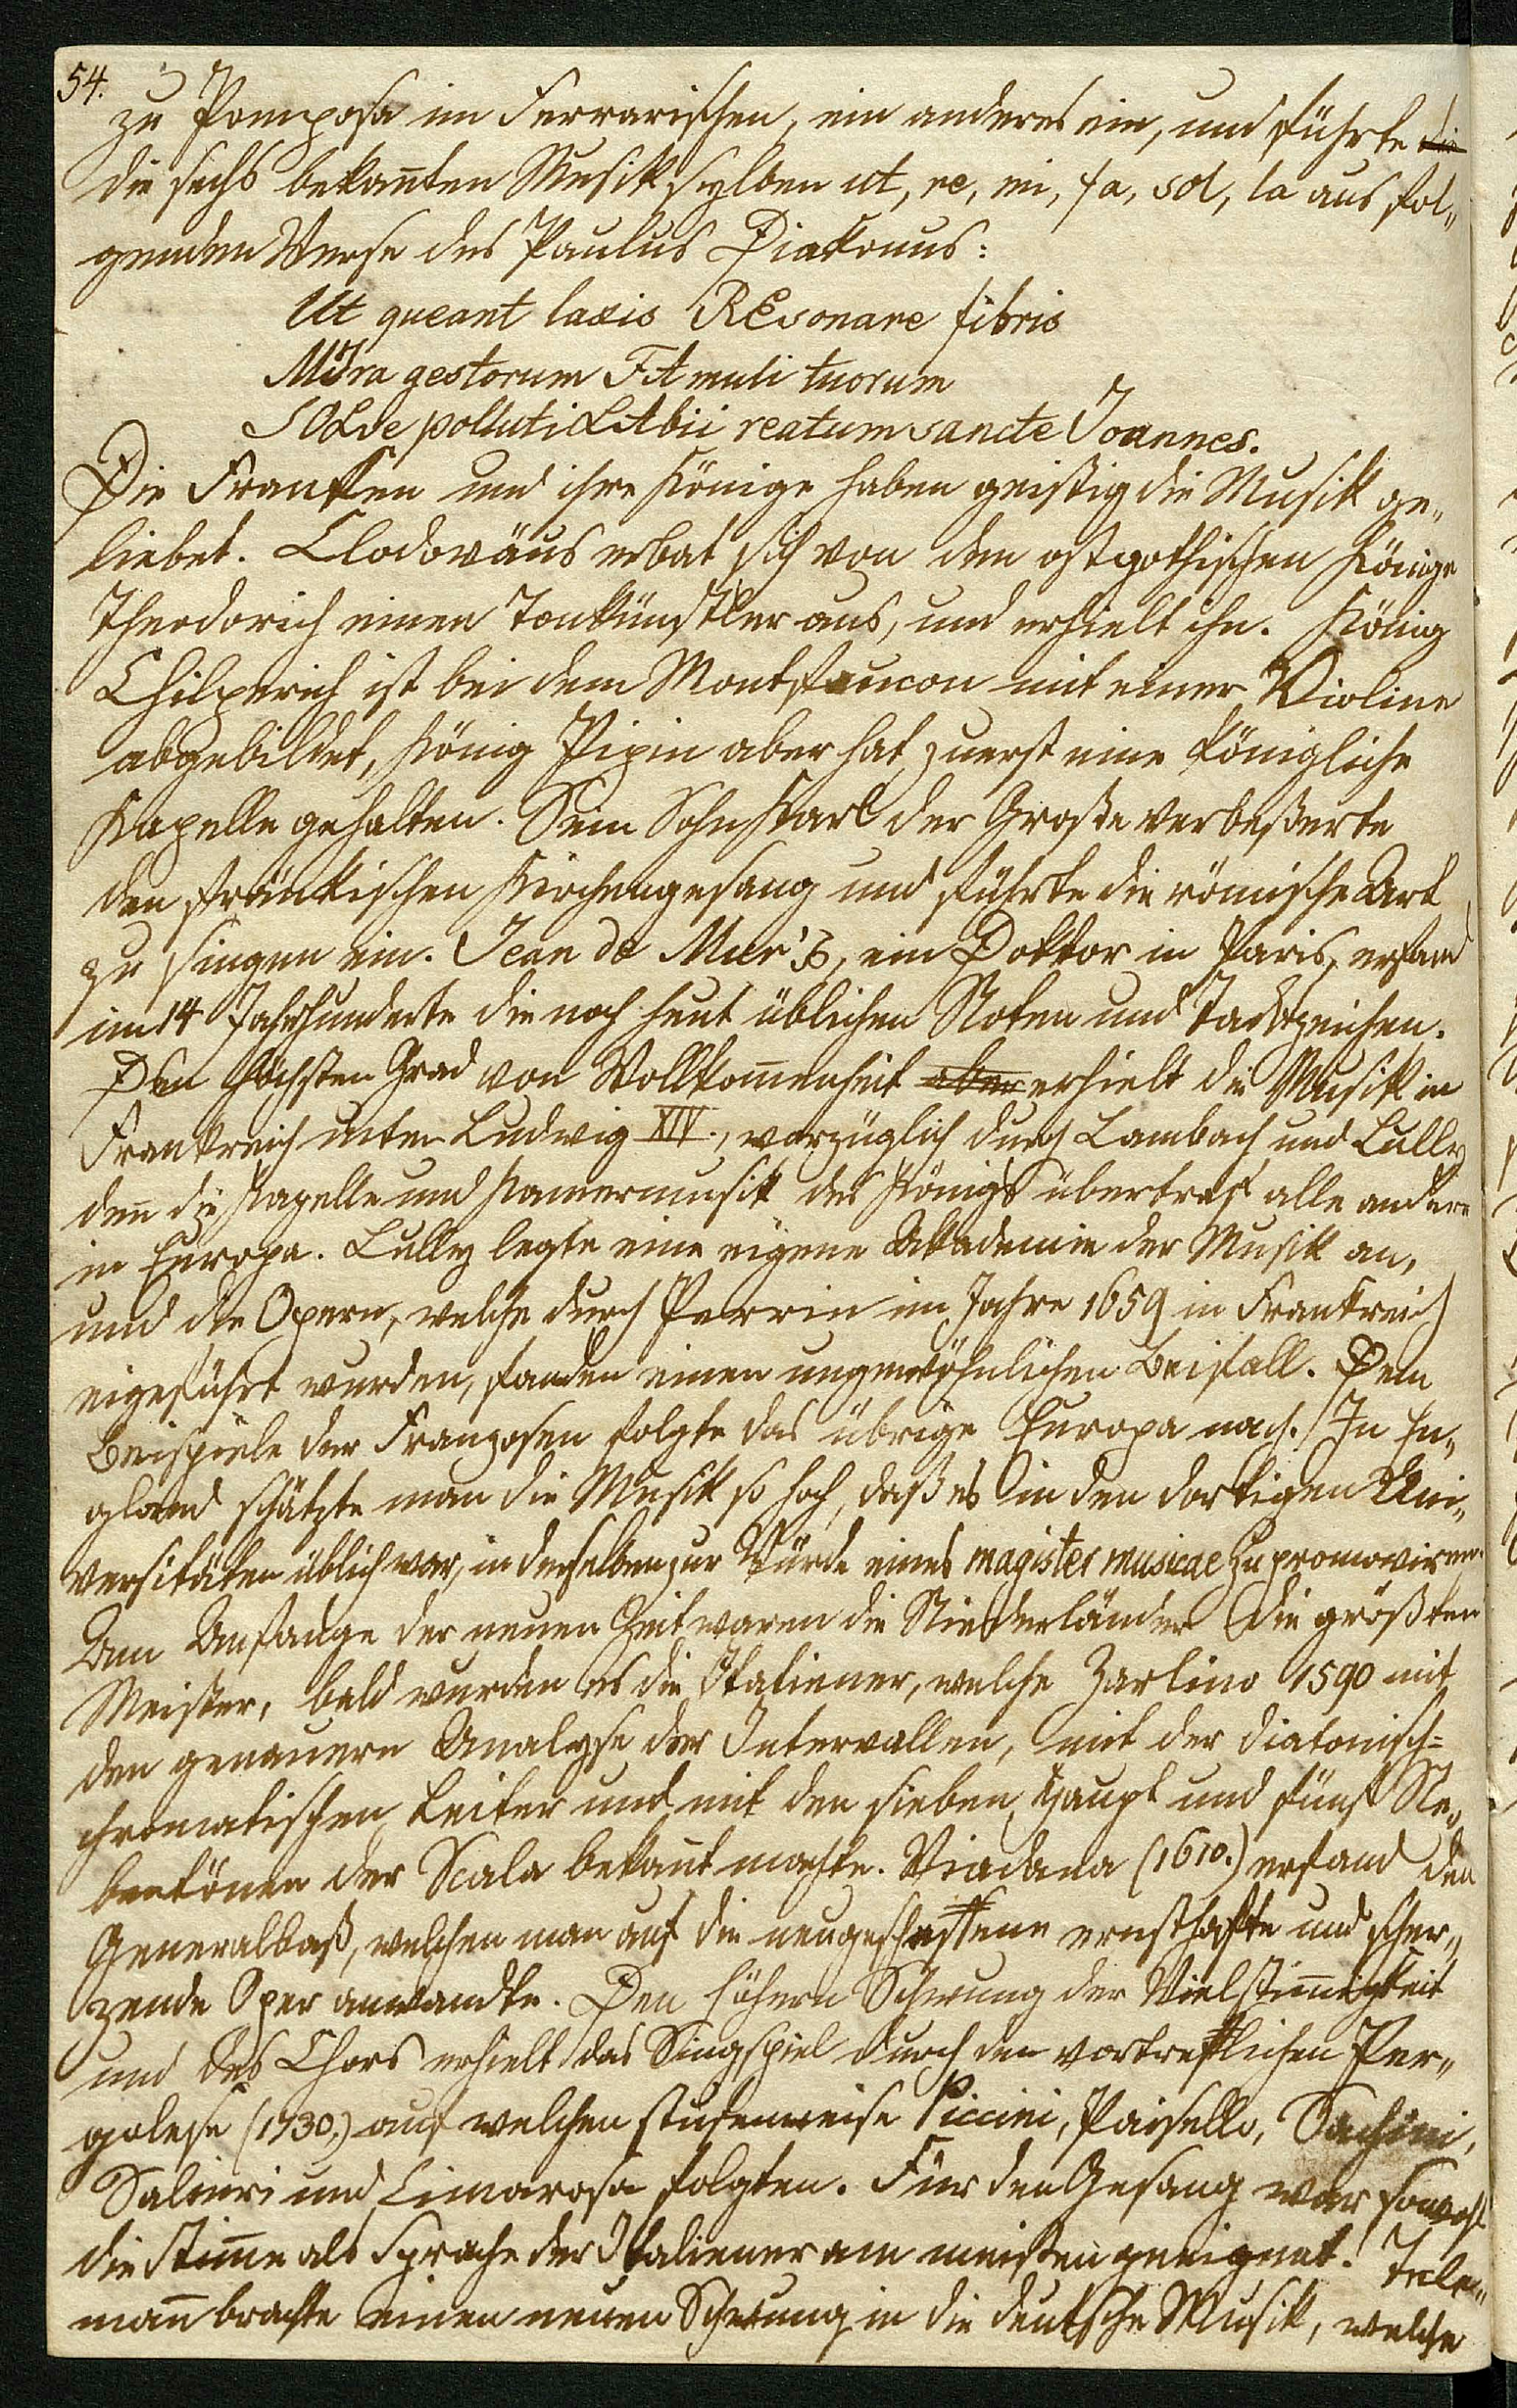 54.
zu Pomposa im Ferrarischen, ein anderes ein, und führte die
die sechs bekañten Musiksylben ut, re, mi, fa, sol, la aus fol„
genden Verse des Paulus Diakonus:
Ut queant laxis REsonare fibris
MIra gestorum FAmuli tuorum
SOLve polluti LAbii reatum sancte Joannes.
Die Franken und ihre Könige haben geistig die Musik ge„
liebet. Clodoväus erbat sich von den ostgothischen Könige
Theodorich einen Tonkünstler aus, und erhielt ihn. König
Chilperich ist bei dem Montfaucon mit einer Violine
abgebildet, König Pipin aber hat zuerst eine königliche
Kapelle gehalten. Sein Sohn Karl der Große verbeßerte
den fränkischen Kirchengesang und führte die römische Art
zu singen ein. Jean de Mur's, ein Doktor in Paris, erfand
im 14 Jahrhunderte die noch heut üblichen Noten und Tacktzeichen.
Den höchsten Grad von Vollkom̃enheit aber erhielt die Musik in
Frankreich unter Ludwig XIV., vorzüglich durch Lambach und Lully
deñ die Kapelle und Kam̃ermusik des Königs übertraf alle andere
in Europa. Lully legte eine eigene Akademie der Musik an,
und die Opern, welche durch Perrin im Jahre 1659 in Frankreich
eigeführt wurden, fanden einen ungewöhnlichen Beifall. Dem
Beispiele der Franzosen folgte das übrige Europa nach. In En„
gland schätzte man die Musik so hoch, daß es in den dortigen Uni„
versitäten üblich war, in derselben zur Würde eines magister musicae zu promoviren.
Am Anfange der neuen Zeit waren die Niederländer die größten
Meister, bald wurden es die Italiener, welche Zarlino 1590 mit
den genauern Analyse der Intervallen, mit der diatonisch=
chromatischen Leiter und mit den sieben Haupt und fünf Ne„
bentönen der Scala bekañt machte. Viadana (1610.) erfand den
Generalbaß, welchen man auf die neugeschaffene ernsthafte und scher„
zende Oper anwandte. Den höhern Schwung der Vielstim̃igkeit
und des Chors erhielt das Singspiel durch den vortrefflichen Per„
golese (1730.) auf welchen stufenweise Piccini, Paisello, Sachini,
Salieri und Cimarosa folgten. Für den Gesang war sowohl
die Stim̃e als Sprache der Italiener am meisten geeignet. Tele„
mañ brachte einen neuen Schwung in die deutsche Musik, welche